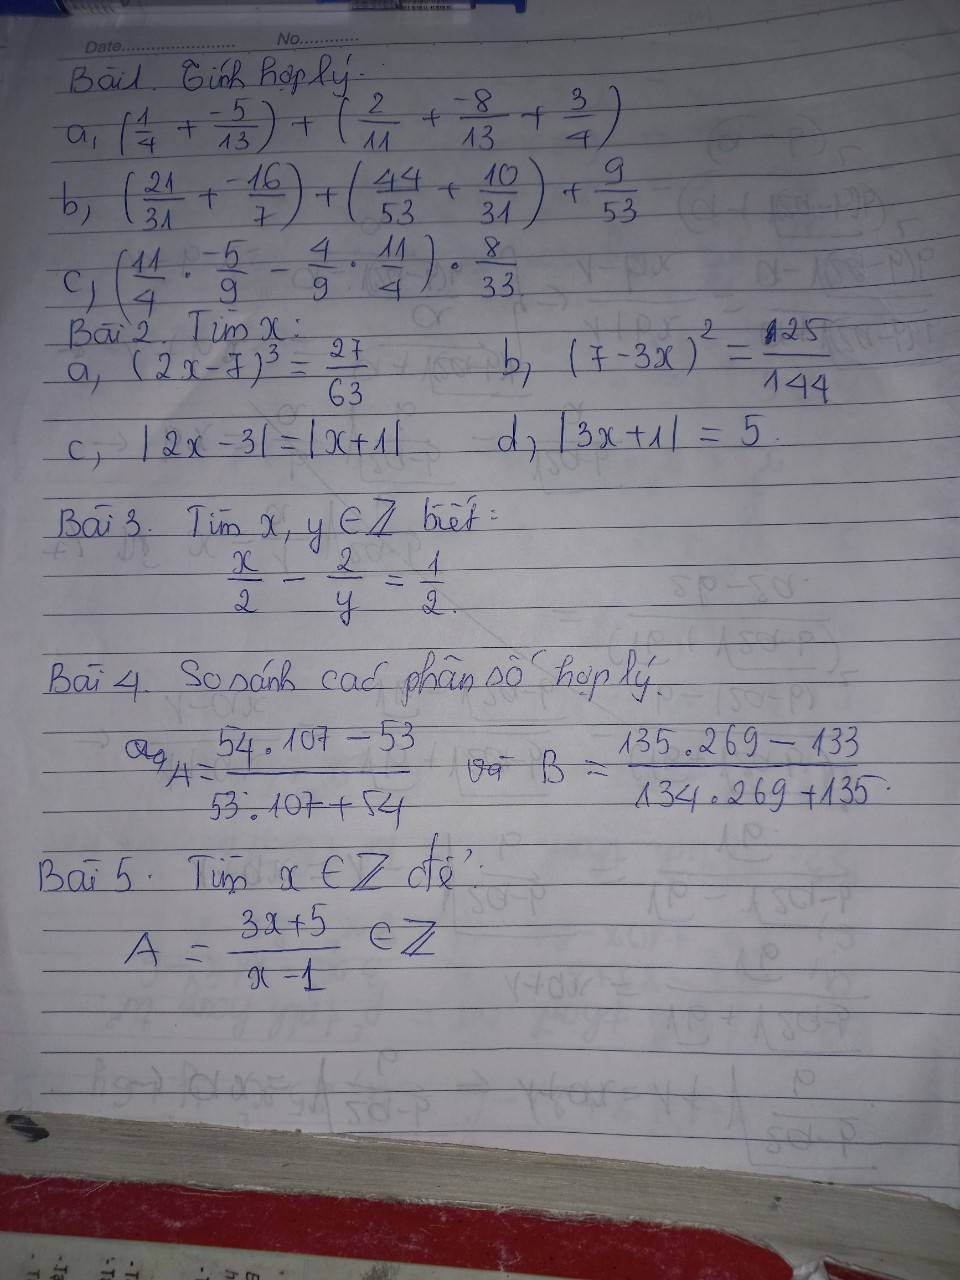 Date........................ No............
Bài 1. Tính hợp lý.
a, (1/4 + -5/13) + (2/11 + -8/13 + 3/4)
b, (21/31 + -16/7) + (44/53 + 10/31) + 9/53
c, (11/4 . -5/9 - 4/9 . 11/4) . 8/33
Bài 2. Tìm x:
a, (2x-7)³ = 27/63 b, (7-3x)² = 125/144
c, |2x-3| = |x+1| d, |3x+1| = 5.
Bài 3. Tìm x, y ∈ Z biết:
x/2 - 2/y = 1/2.
Bài 4. So sánh các phân số hợp lý.
a, A = 54.107-53/53.107+54 và B = 135.269-133/134.269+135.
Bài 5. Tìm x ∈ Z để:
A = 3x+5/x-1 ∈ Z